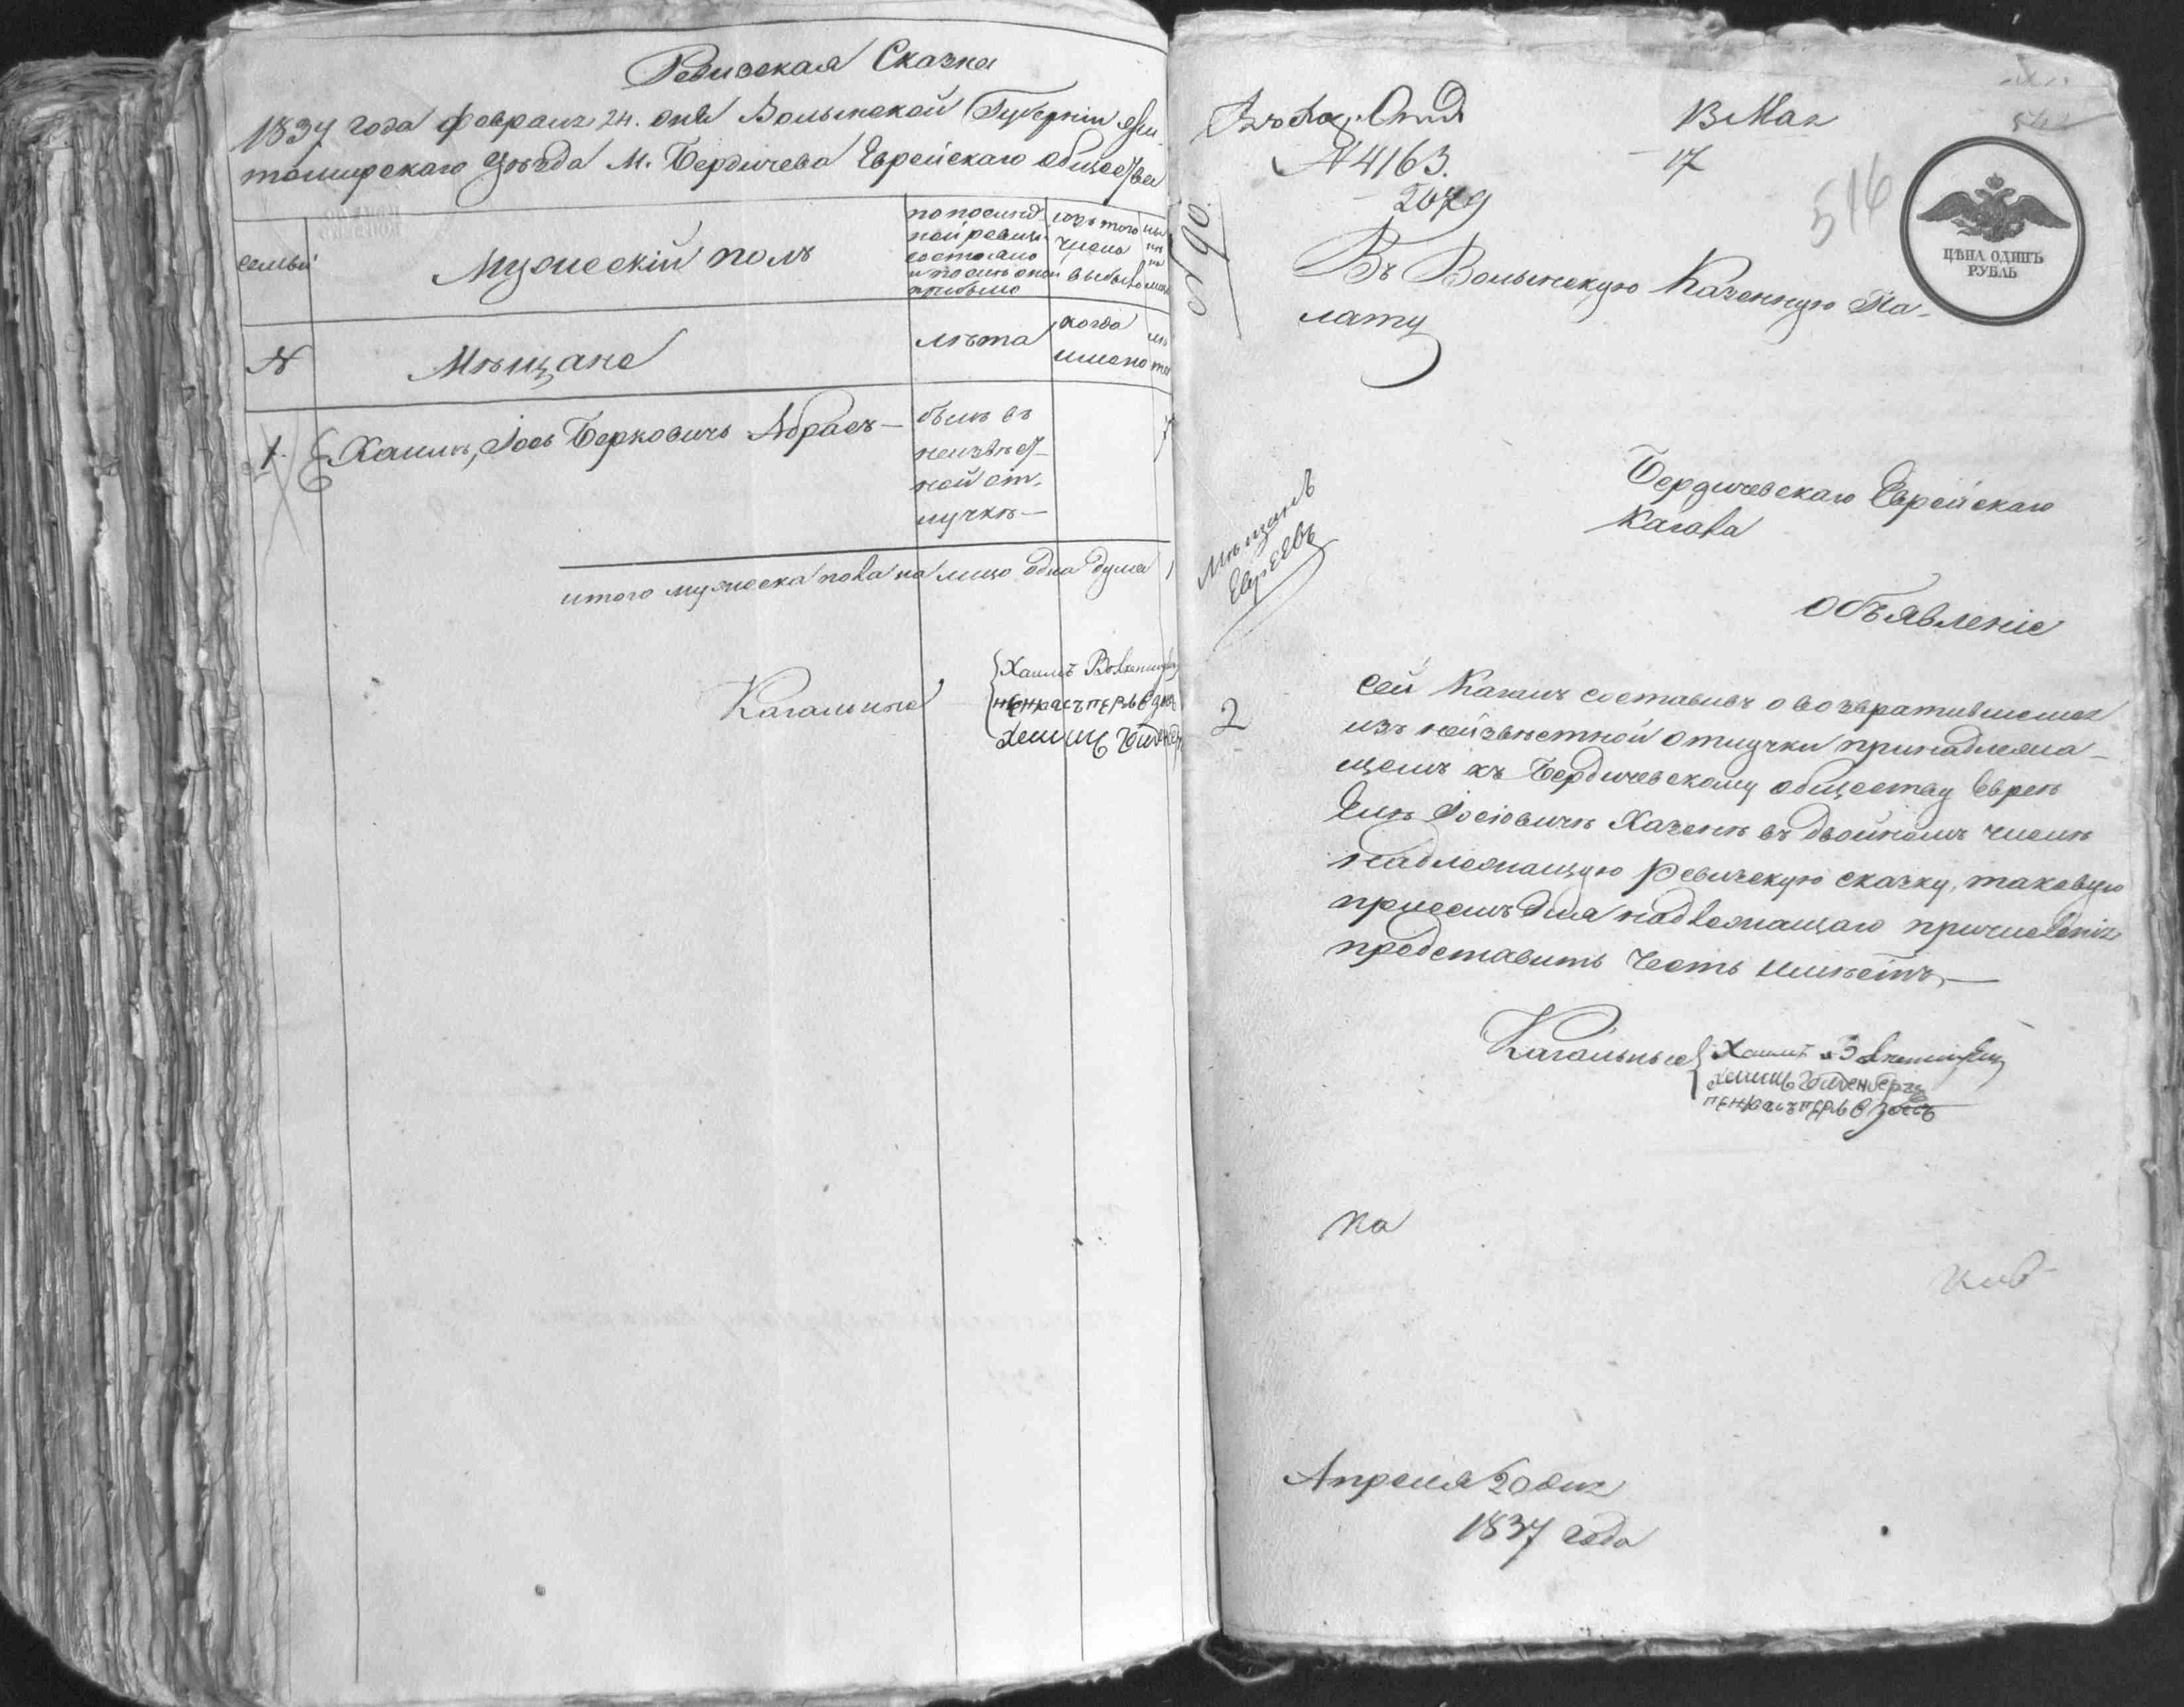 Ревизская Сказка
1837 года февраля 24. дня Волынской Губерніи Жи-
томирскаго Уѣзда М. Бердичева Еврейскаго общества
семьи
Мужескій полъ
по послѣд-
ней ревизіи
состояло
и послѣ оной
прибыло
изъ того
числа
выбыло
№
Мѣщане
лѣта
когда
имено
1.
Хаимъ, Іось Берковичъ Абрасъ—
былъ въ
неизвѣст-
ной от-
лучкѣ—
итого мужеска пола на лицо одна душа 1
Кагальные
Хаимъ
13 Мая
№ 4163.
17
2079
516
ЦѢНА ОДИНЪ
РУБЛЬ
90
Въ Волынскую Казенную Па-
лату
Бердичевскаго Еврейскаго
Кагала
Мѣщанъ
Евреевъ
Объявленіе
2
Сей Кагалъ составивъ о возвратившемся
изъ неизвѣстной отлучки принадлежа-
щемъ къ Бердичевскому обществу Евреѣ
Іосіовичѣ Хазенѣ въ двойномъ числѣ
надлежащую Ревизскую сказку, таковую
присемъ для надлежащаго причисленія
представить честь имѣетъ—
Кагальные
Хаимъ
Гольденбергъ
Ка
Апреля 20 дня
1837 года